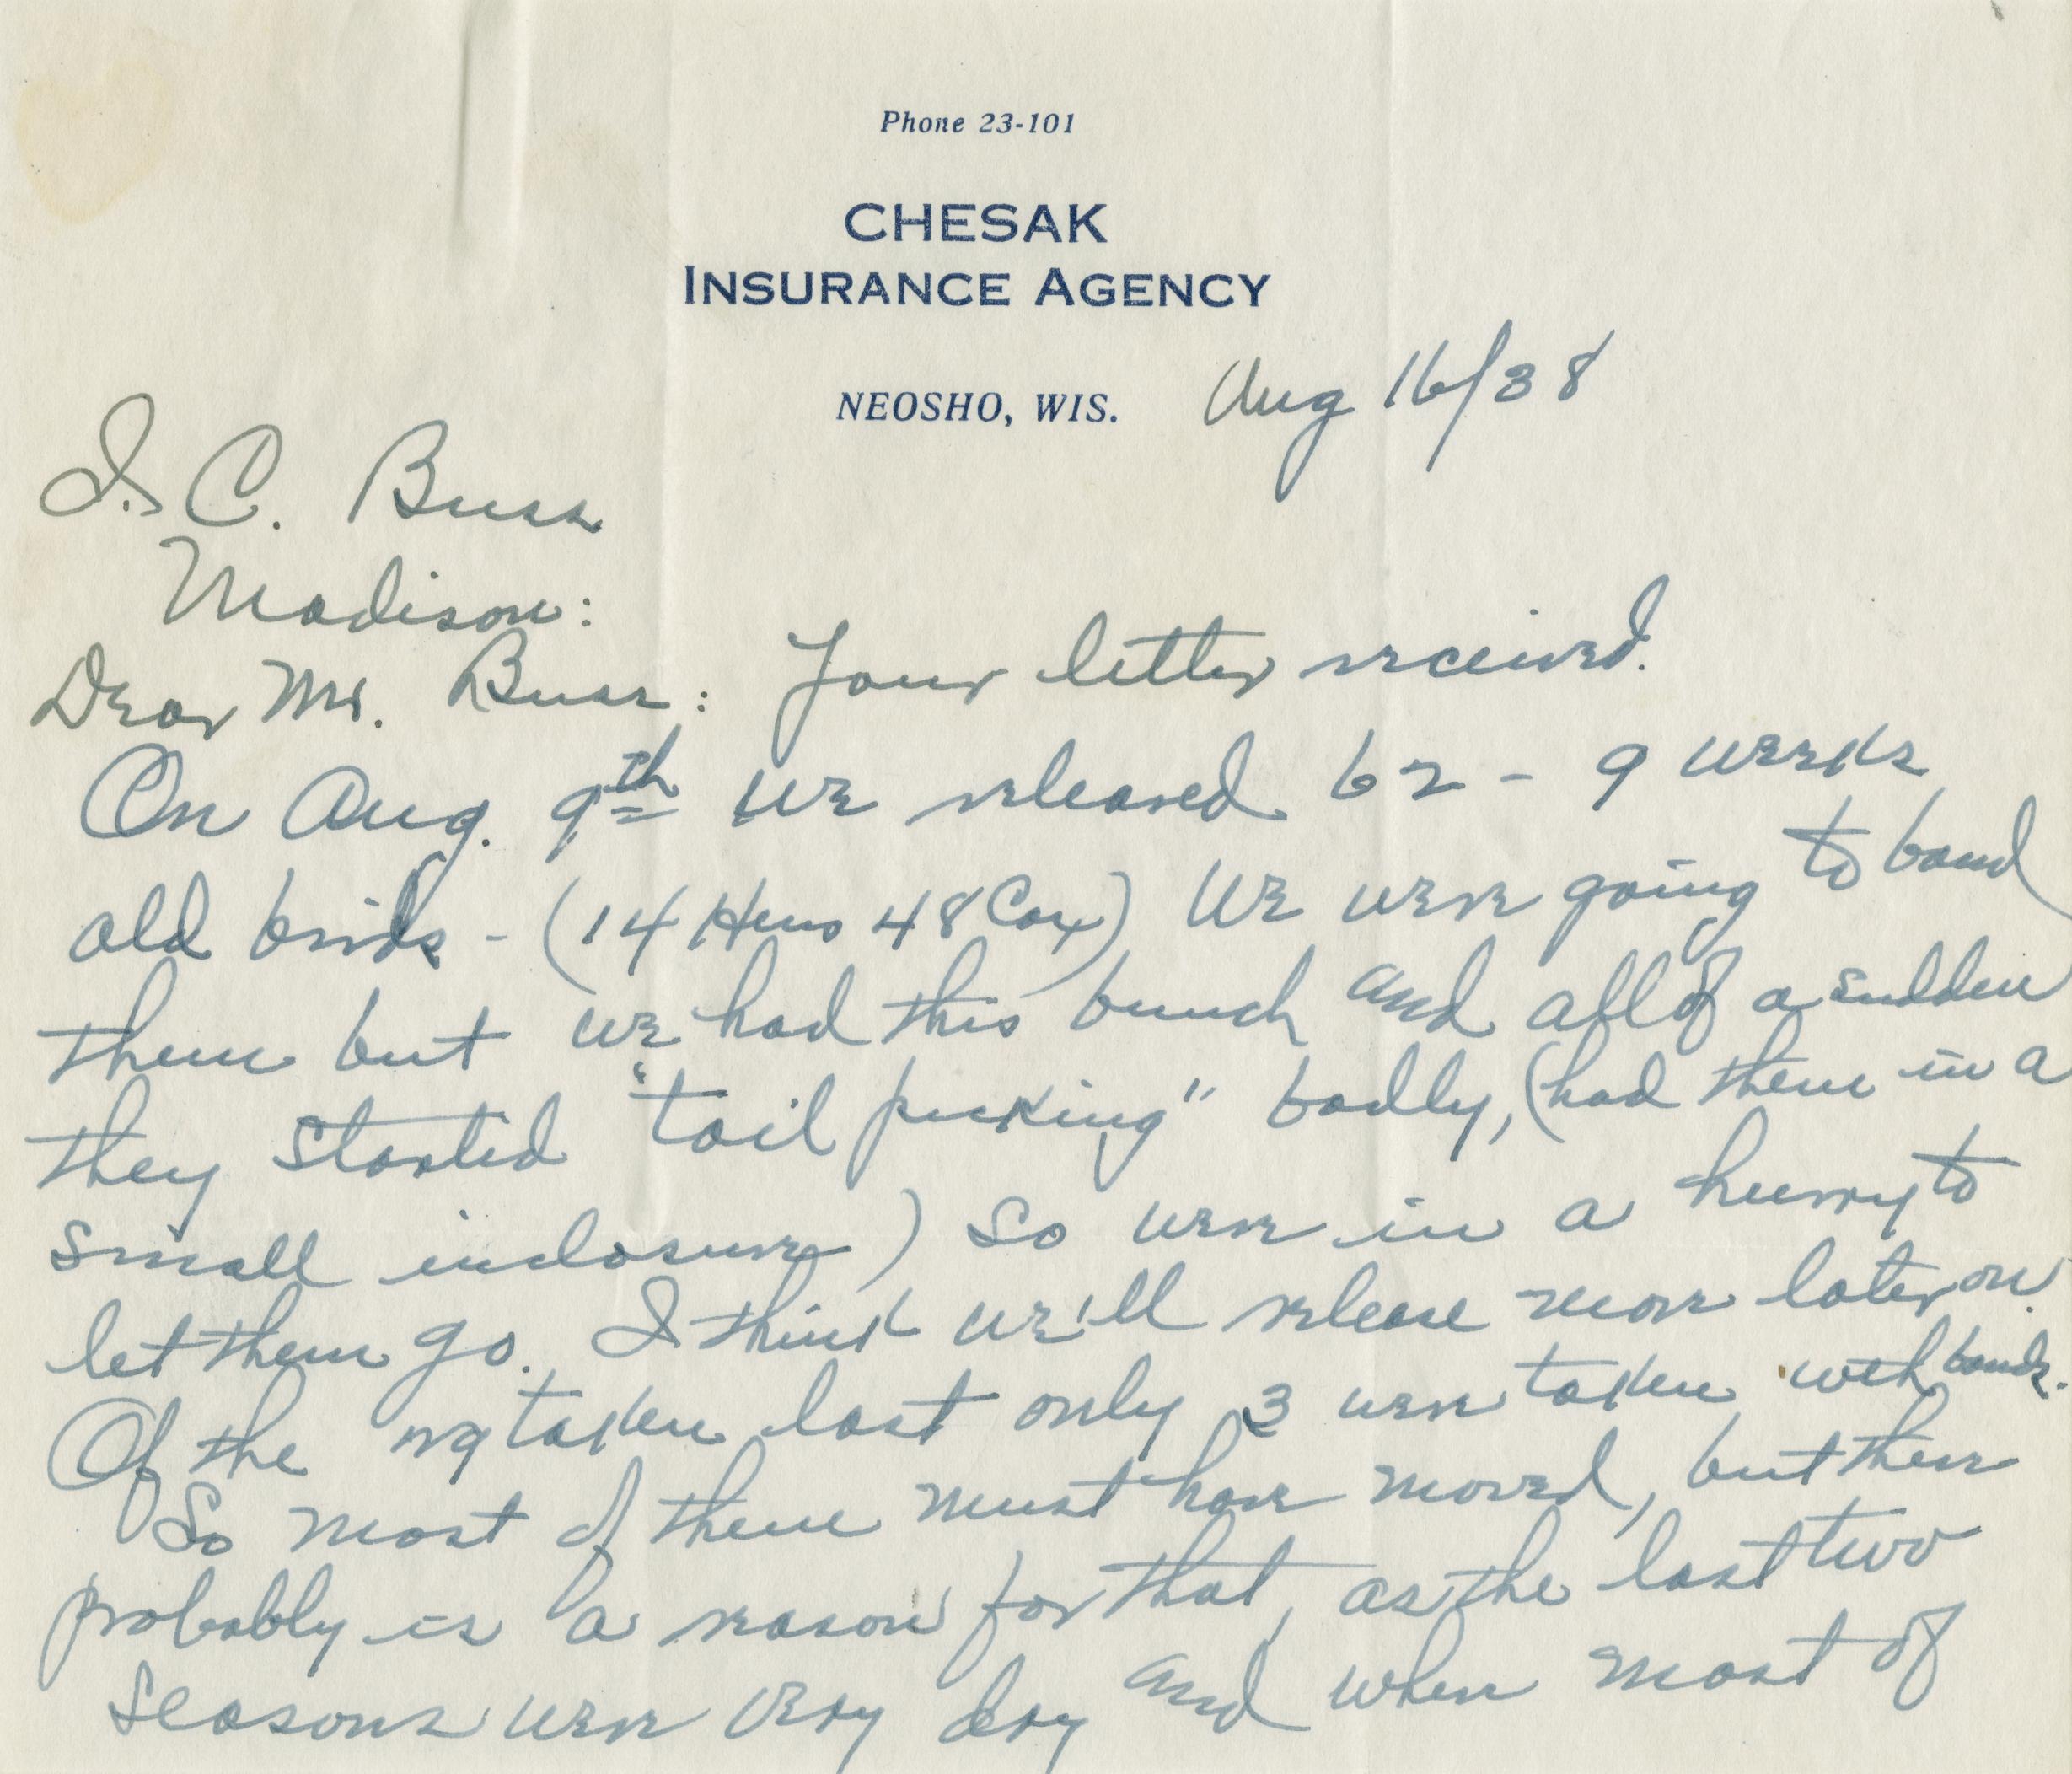 Phone 23-101
CHESAK
INSURANCE AGENCY
NEOSHO, WIS.
Aug 16/38
I. C. Buss
Madison:
Dear Mr. Buss: Your letter received.
On Aug. 9th we released 62 - 9 weeks
old birds - (14 Hens 48 Cox) We were going to band
them but we had this bunch and all of a sudden
they started "tail picking" badly, (had them in a
small inclosure) So were in a hurry to
let them go. I think we'll release more later on.
Of the taken last only 3 were taken with bands.
So most of them must have moved, but there
probably is a reason for that, as the last two
seasons were very dry and when most of